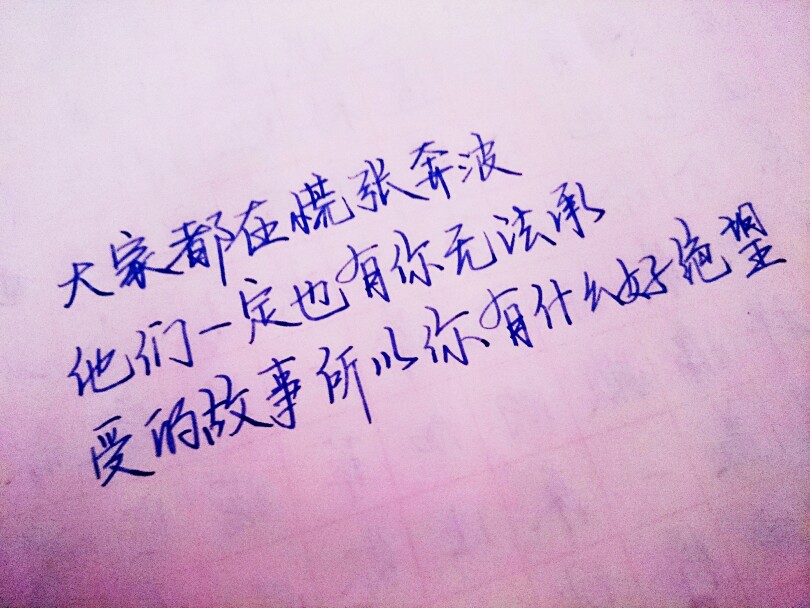 大家都在慌张奔波
他们一定也有你无法承
受的故事所以你有什么好绝望